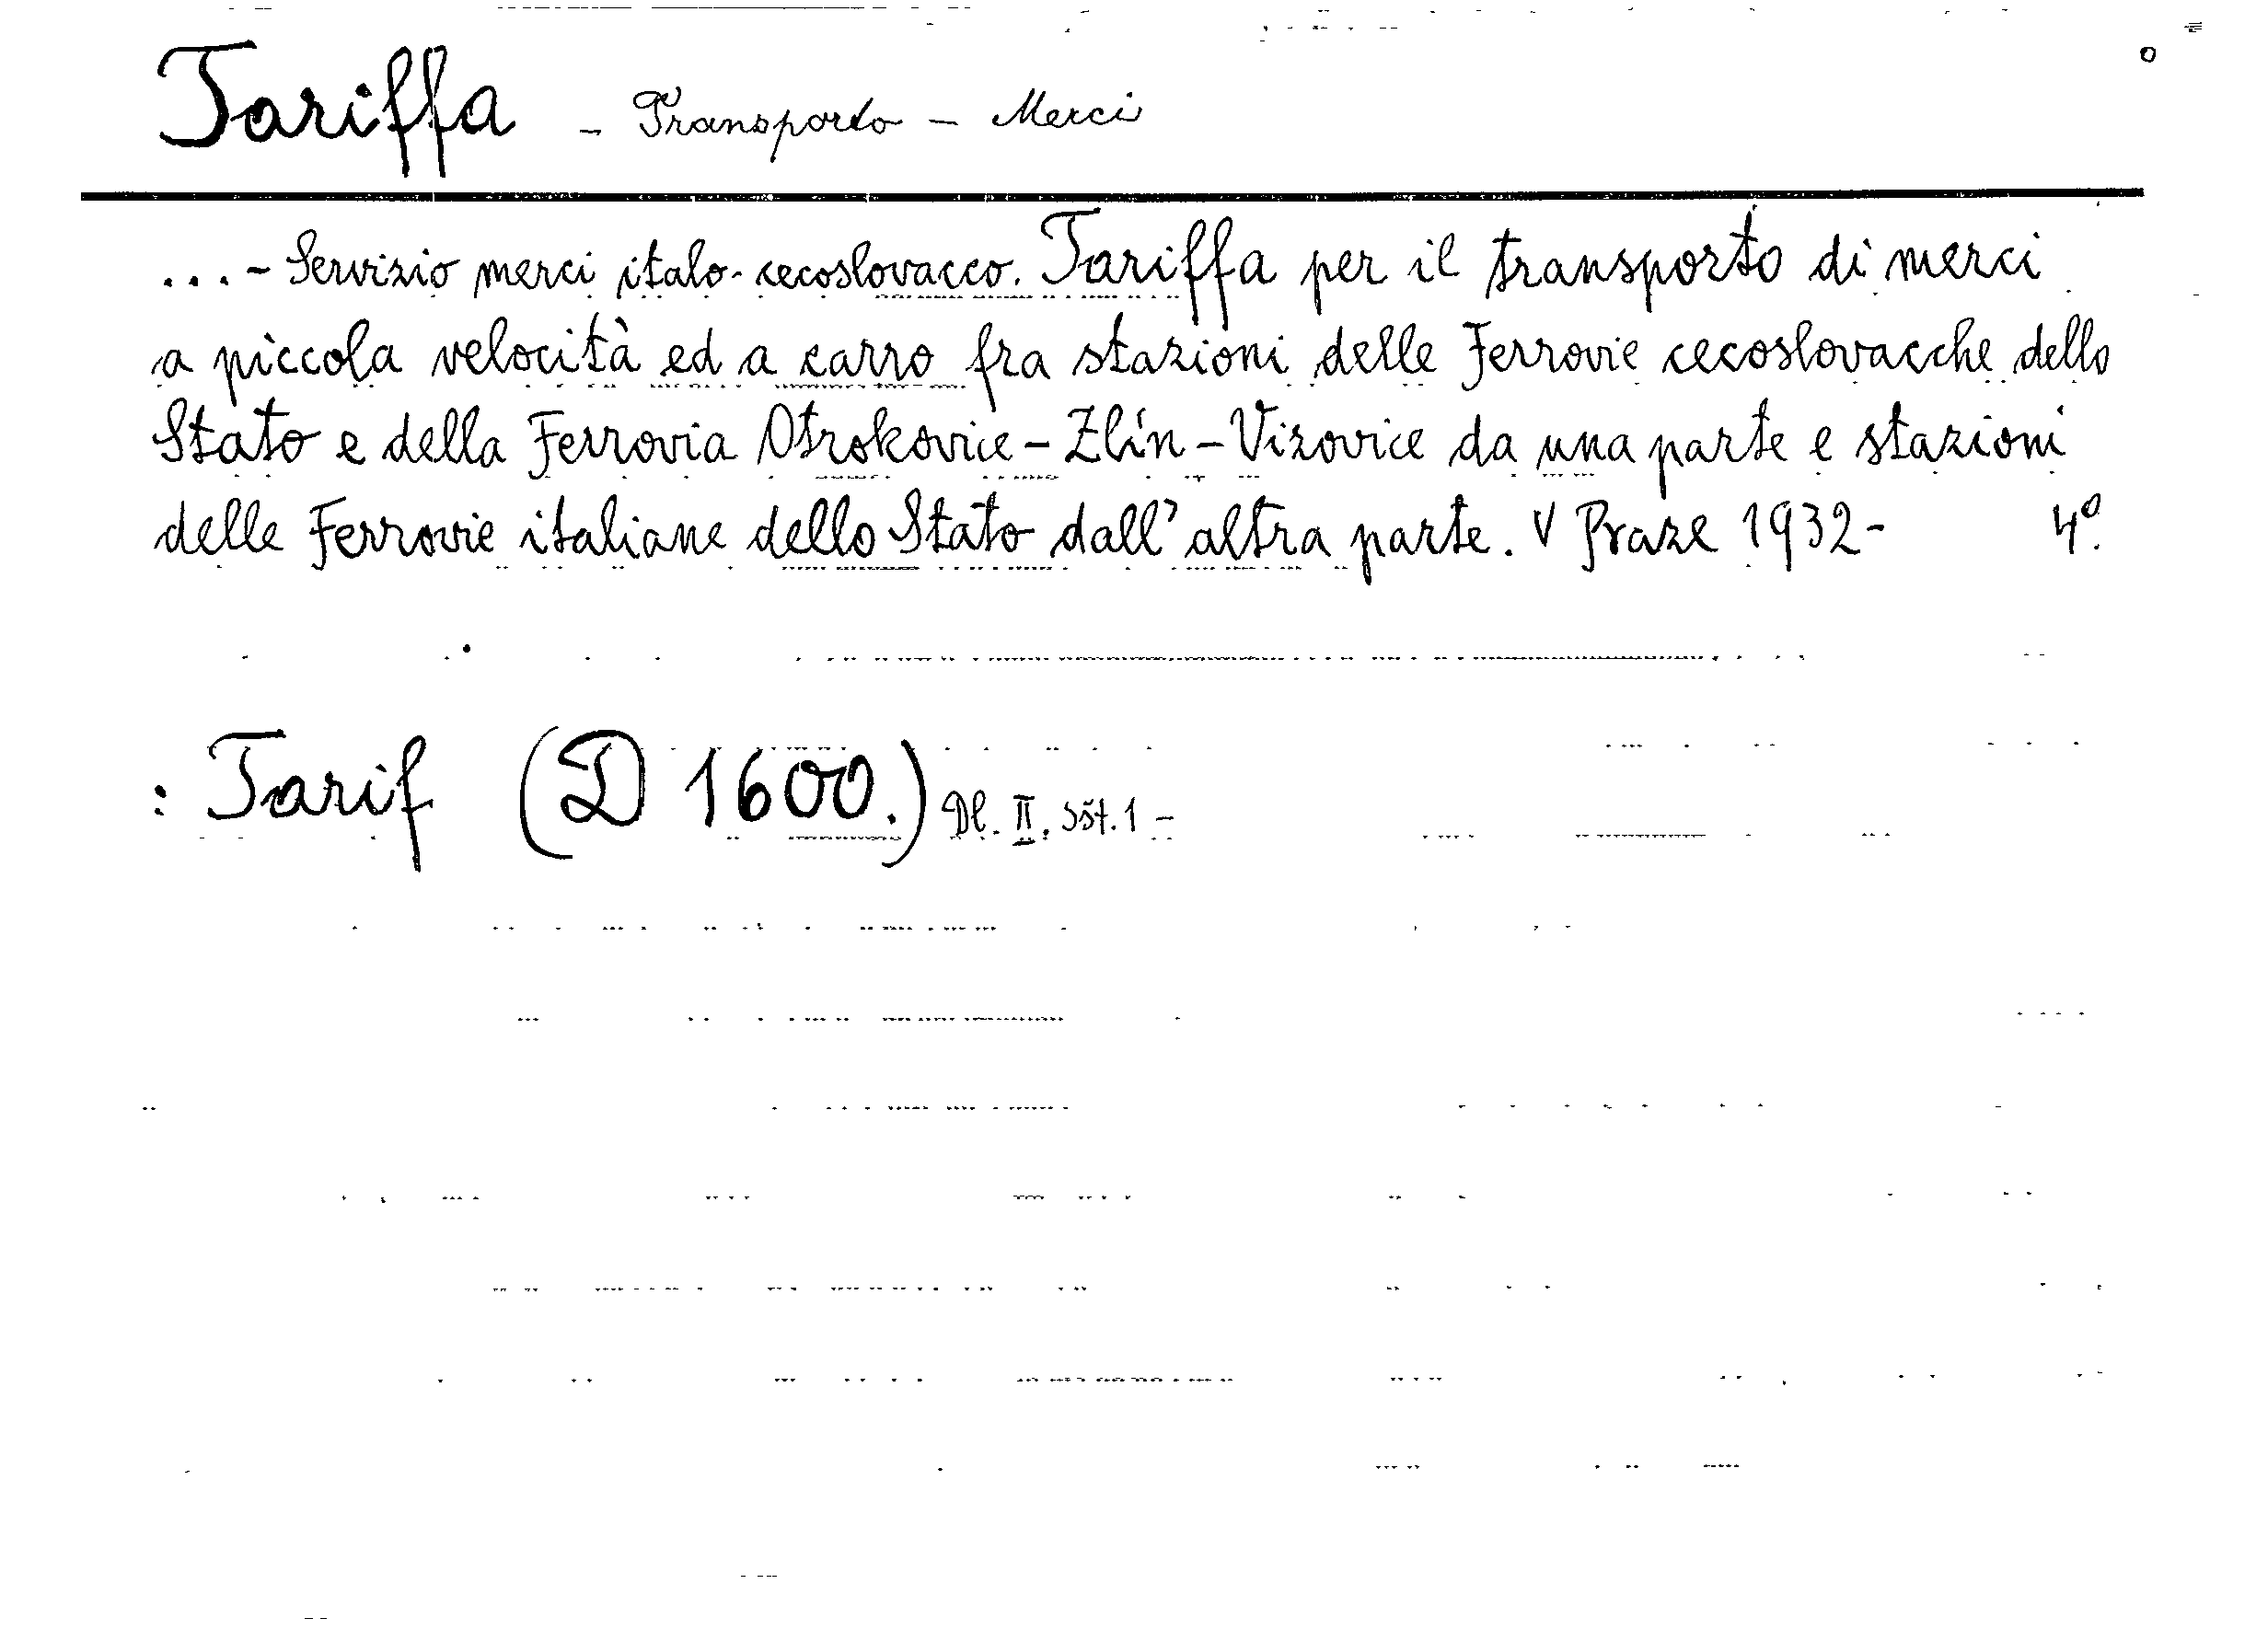 Tariffa - Transporto - Merci
...- Servizio merci italo-cecoslovacco. Tariffa per il transporto di merci
a piccola velocità ed a carro fra stazioni delle Ferrovie cecoslovacche dello
Stato e della Ferrovia Otrokovice - Zlín - Vizovice da una parte e stazioni
delle Ferrovie italiane dello Stato dall'altra parte. V Praze 1932- 4º.
: Tarif (D 1600.) Dl. II, sšt. 1 -